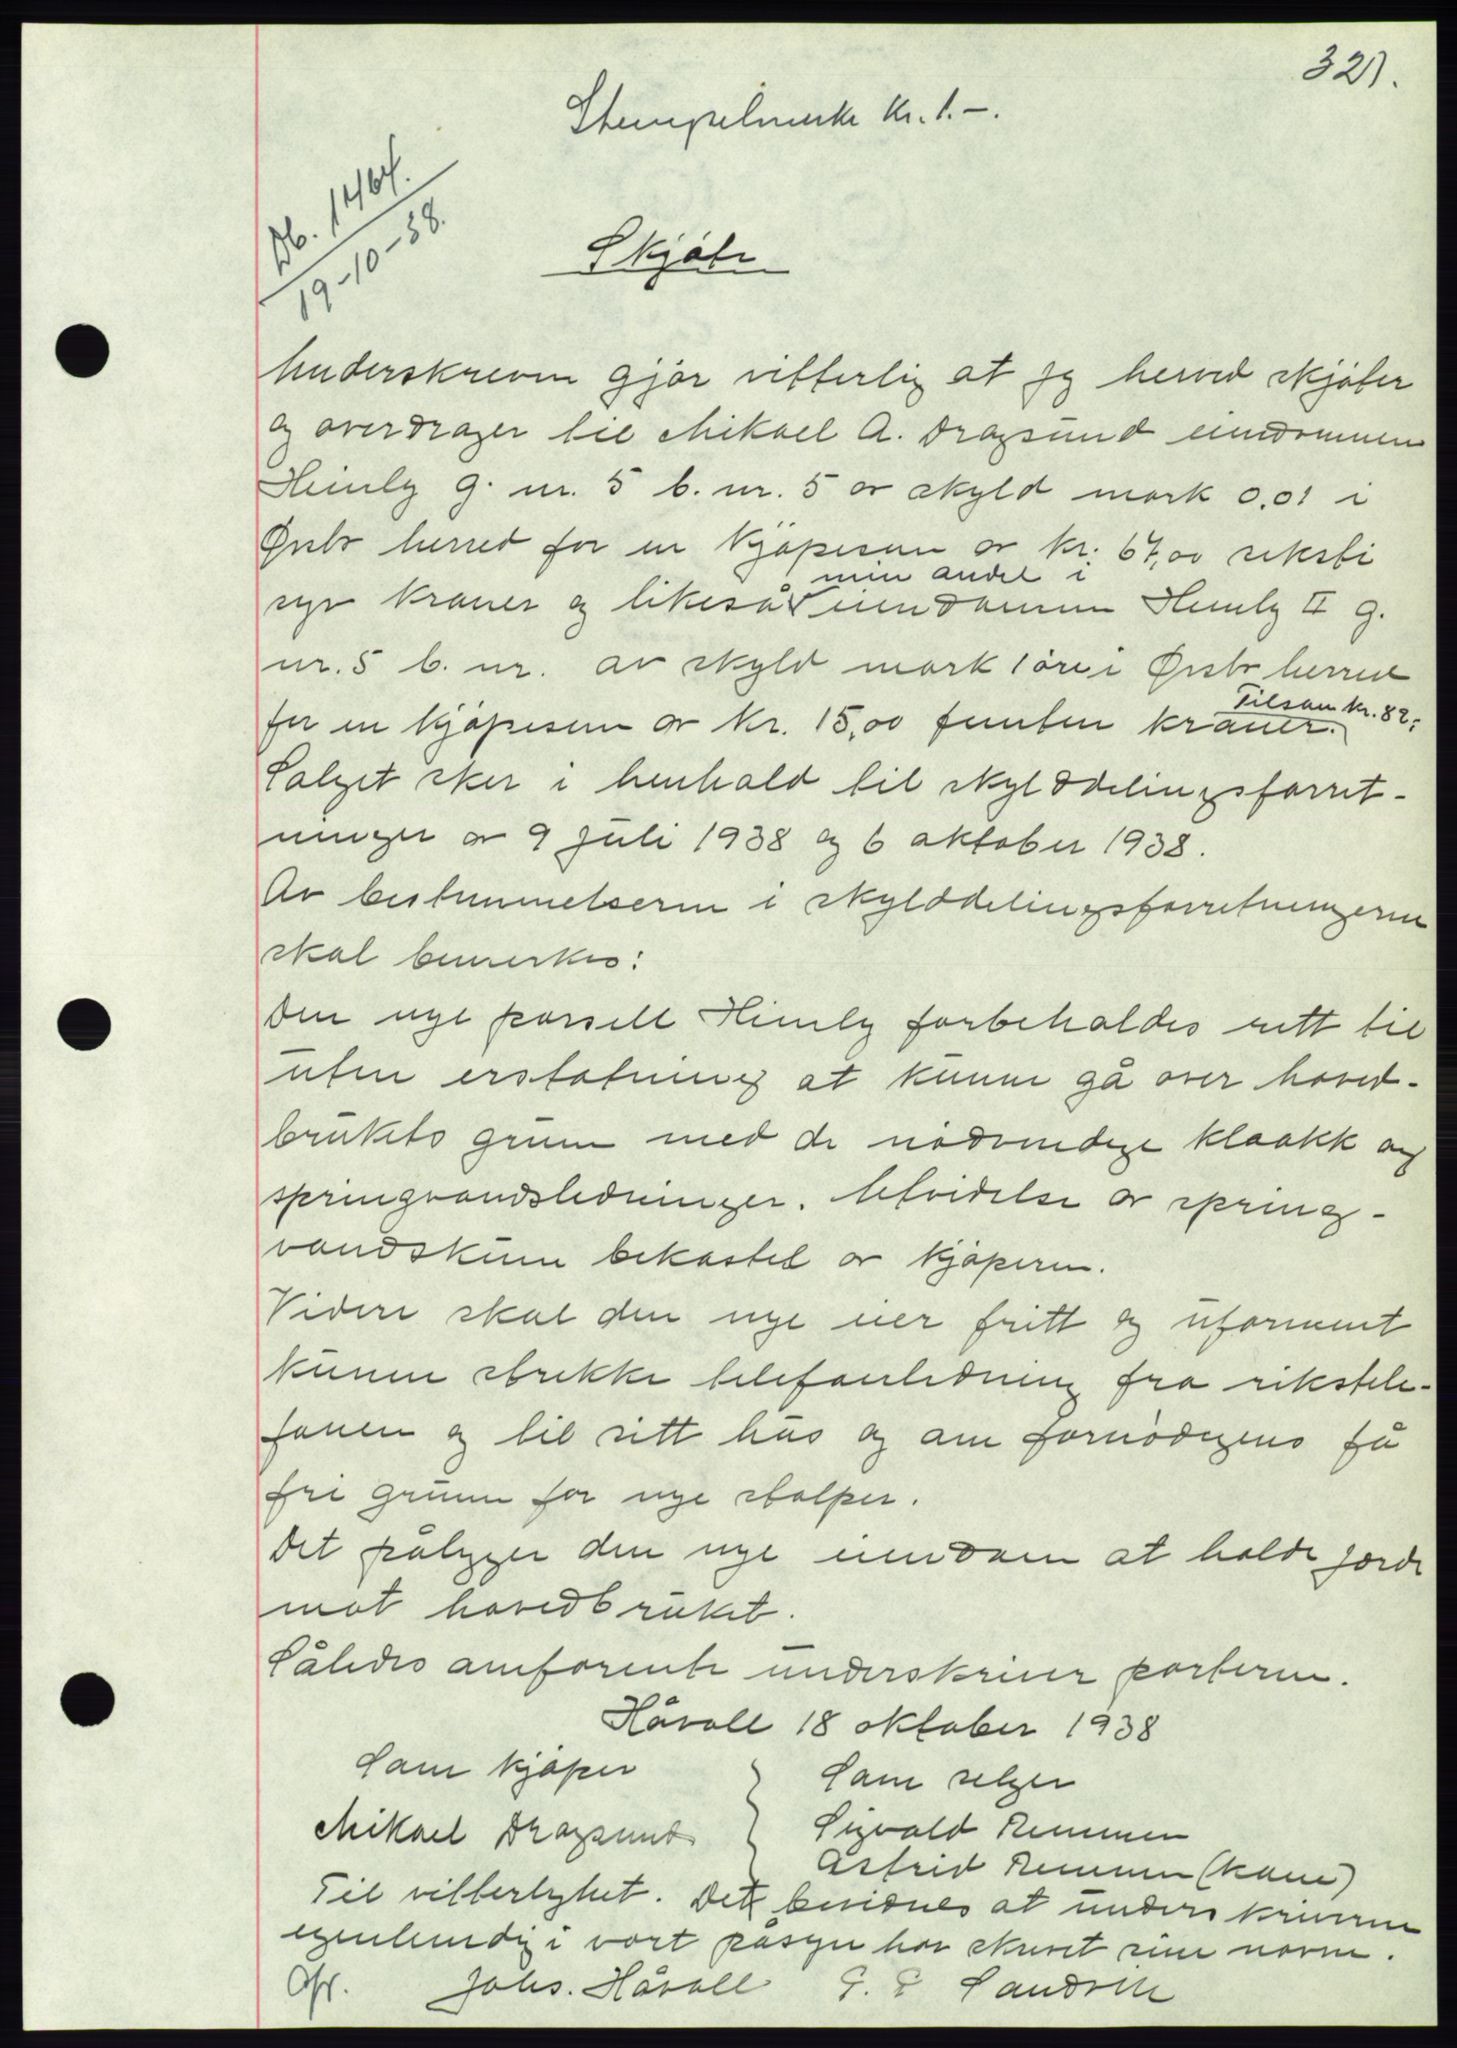 321.
Stempelmerke kr. 1.-.
Db. 1464.
19-10-38.
Skjöte
Underskreven gjör vitterlig at jeg herved skjöter
og overdrager til Mikael A. Dragsund eiendommen
Heimly g. nr. 5 b. nr. 5 av skyld mark 0,01 i
Ørsta herred for en kjöpesum av kr. 67,00 seksti
min andel i
syv kroner og likeså eiendommen Heimly II g.
nr. 5 b. nr. av skyld mark 1 öre i Ørsta herred
Tilsam kr. 82,-
for en kjöpesum av kr. 15,00 femten kroner.
Salget sker i henhold til skylddelingsforret-
ninger av 9 juli 1938 og 6 oktober 1938.
Av bestemmelserne i skylddelingsforretningerne
skal bemerkes:
Den nye parsell Heimly forbeholdes rett til
uten erstatning at kunne gå over hoved-
brukets grunn med de nödvendige kloakk og
springvandsledninger. Utvidelse av spring-
vandskum bekostet av kjöperen.
Videre skal den nye eier fritt og uforment
kunne strekke telefonledning fra rikstele-
fonen og til sitt hus og om fornödigens få
fri grunn for nye stolper.
Det pålygger den nye eiendom at holde jorde
mot hovedbruket.
Således omforente underskriver parterne.
Håvoll 18 oktober 1938
Som kjöper
Som selger
Mikael Dragsund
Sigvald Remmen
Astrid Remmen (kone)
Til vitterlighet. Det bevidnes at underskriverne
egenhendig i vort påsyn har skrevet sine navne.
Afr. Johs. Håvoll Sandvik